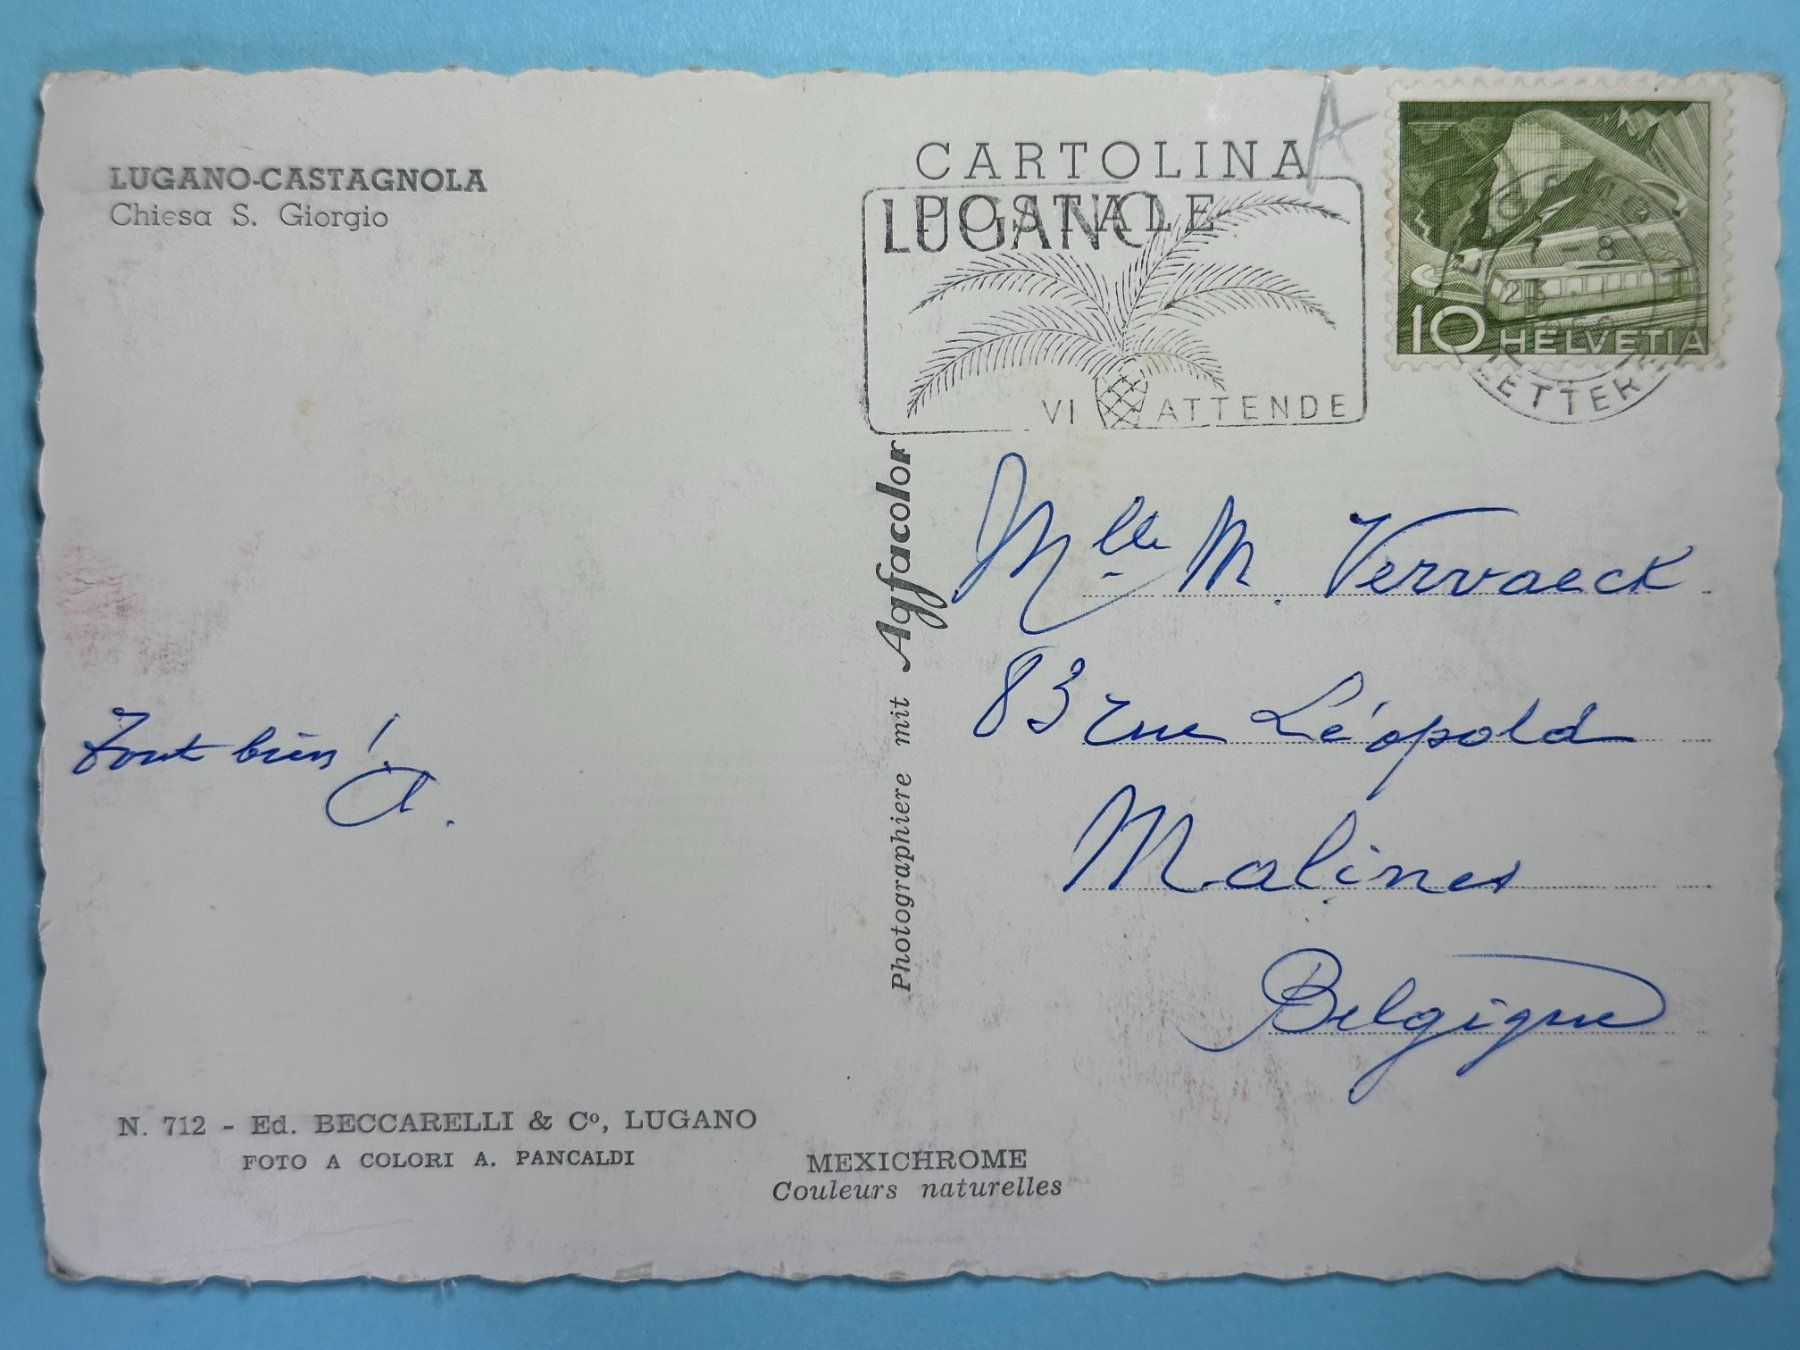 LUGANO-CASTAGNOLA
Chiesa S. Giorgio
CARTOLINA
POSTALE
A
LUGANO
VI ATTENDE
7-8
10 HELVETIA
LETTER
Photographiere mit Agfacolor
Mlle M. Vervaeck
83 rue Léopold
Malines
Belgique
Tout bien!
A.
N. 712 - Ed. BECCARELLI & Co, LUGANO
FOTO A COLORI A. PANCALDI
MEXICHROME
Couleurs naturelles